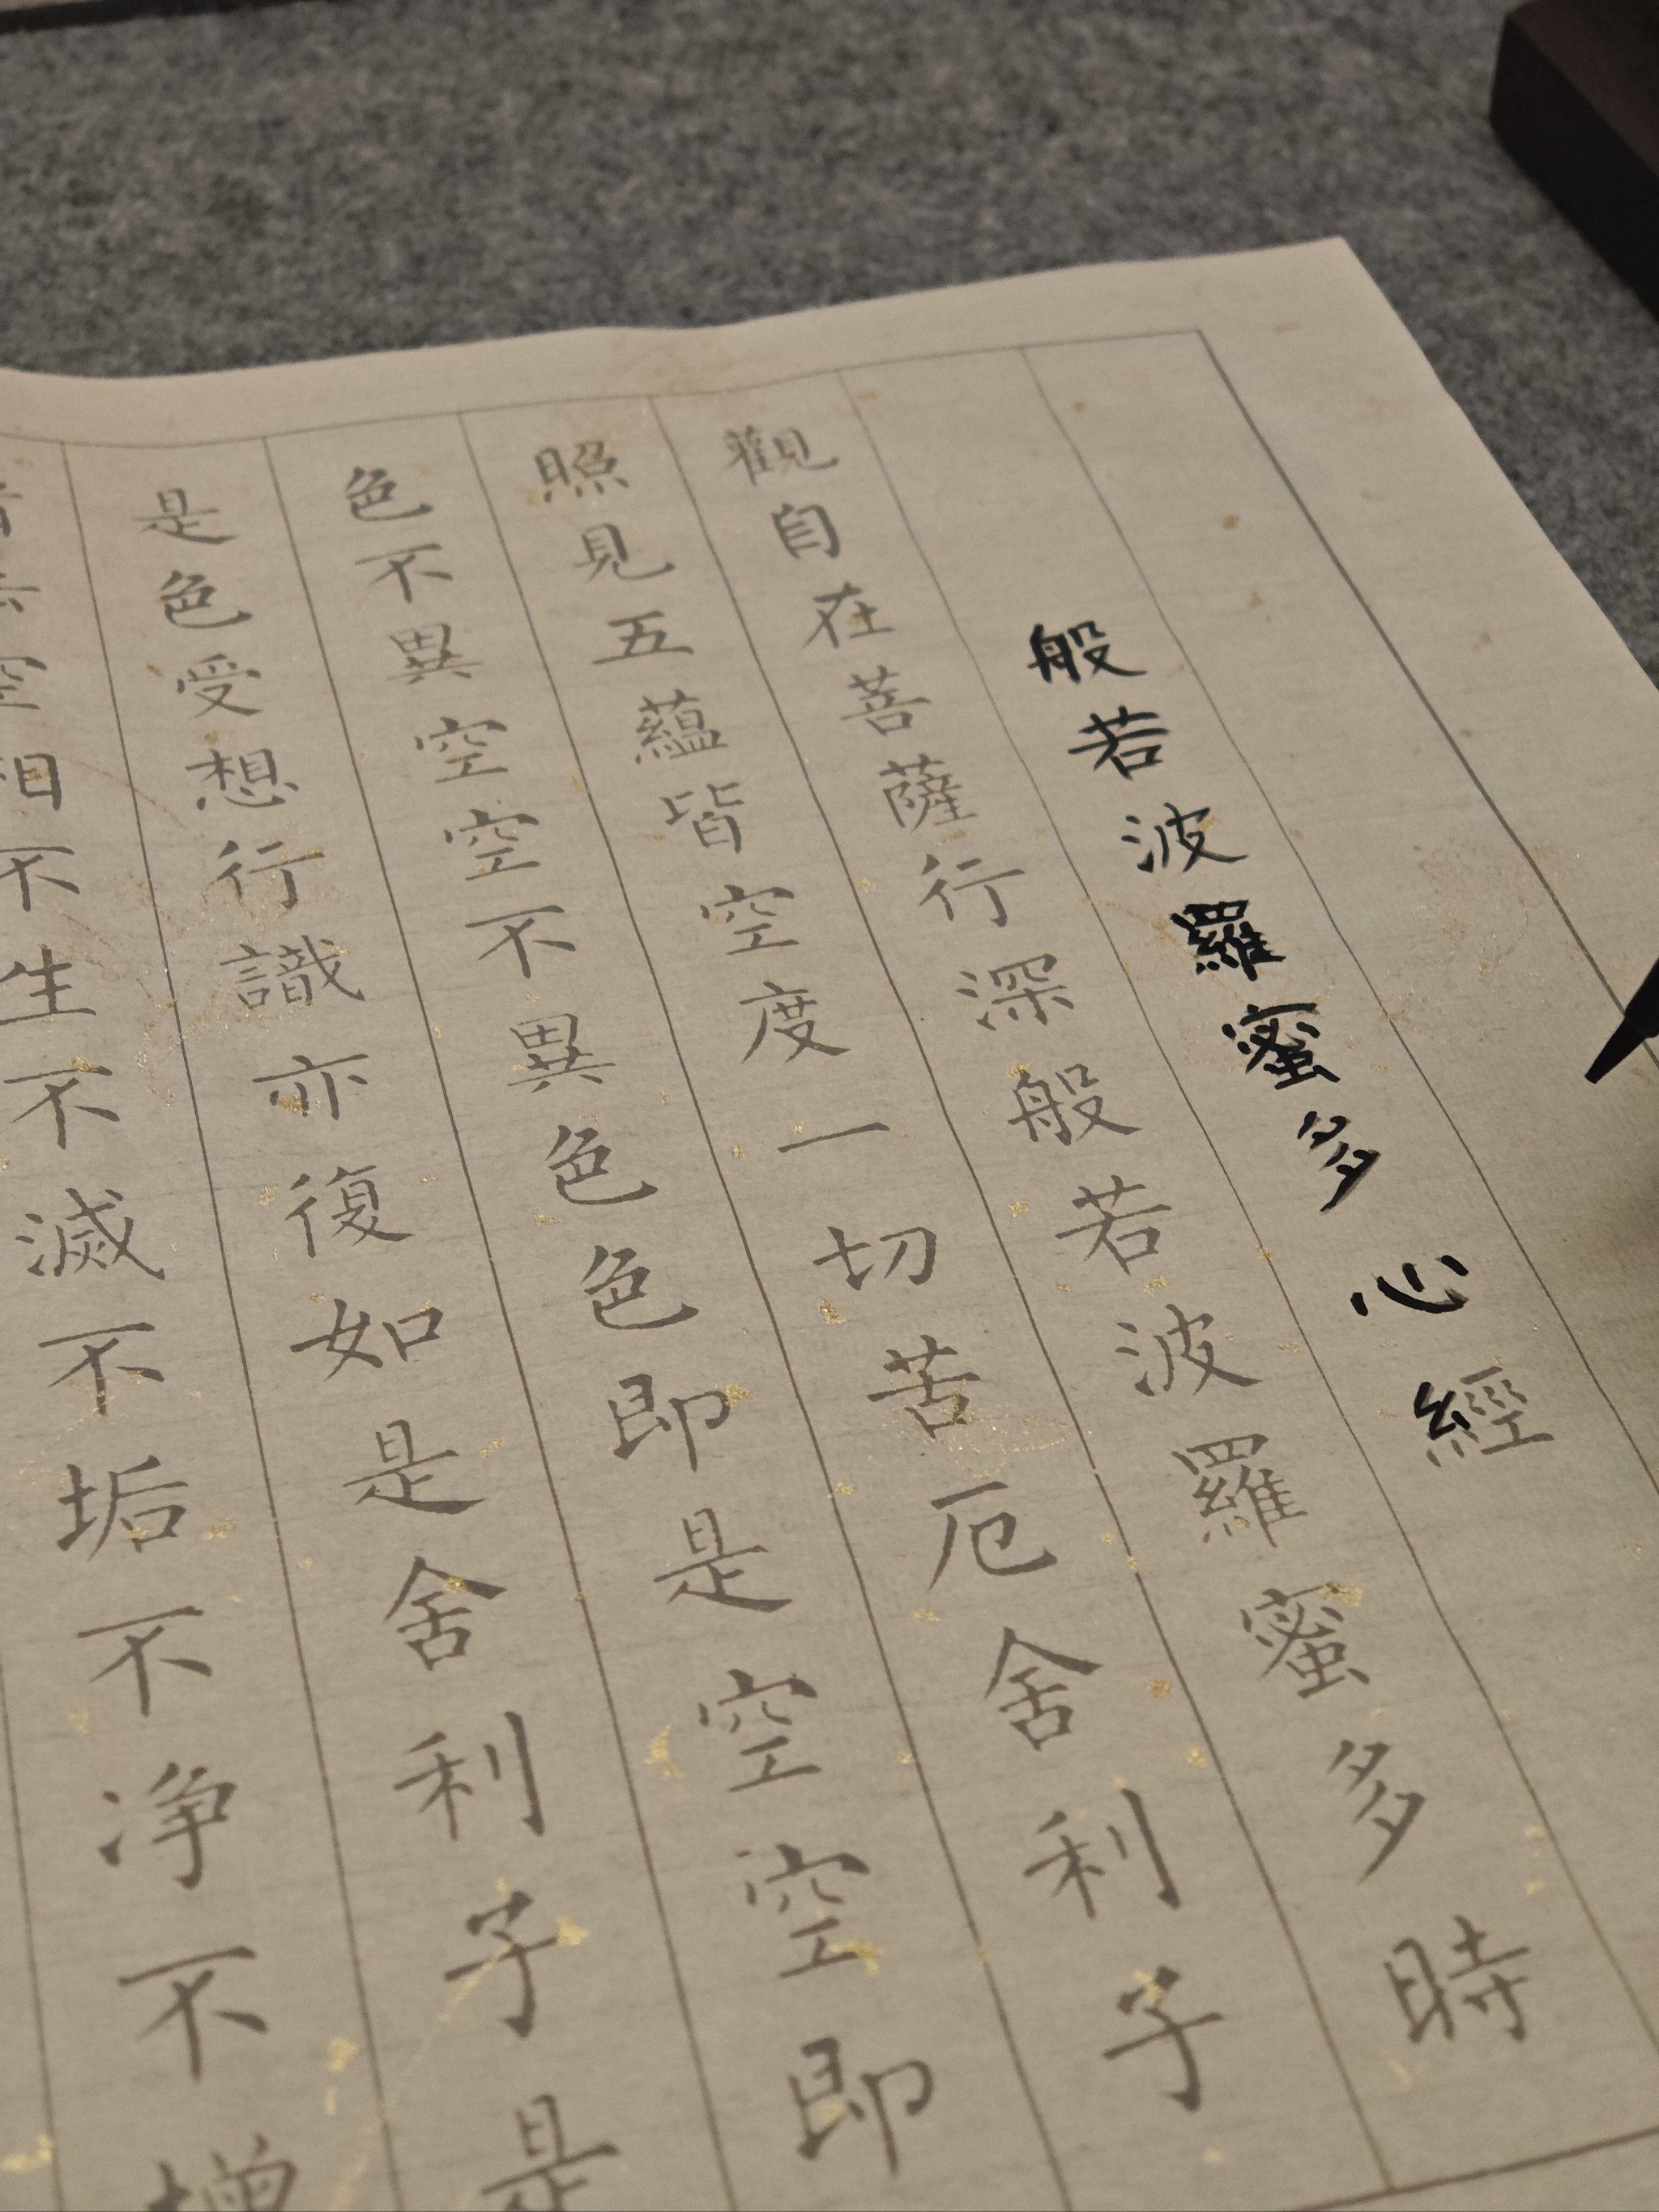 般若波羅蜜多心經
觀自在菩薩行深般若波羅蜜多時
照見五蘊皆空度一切苦厄舍利子
色不異空空不異色色即是空空即
是色受想行識亦復如是舍利子是
空相不生不滅不垢不净不增